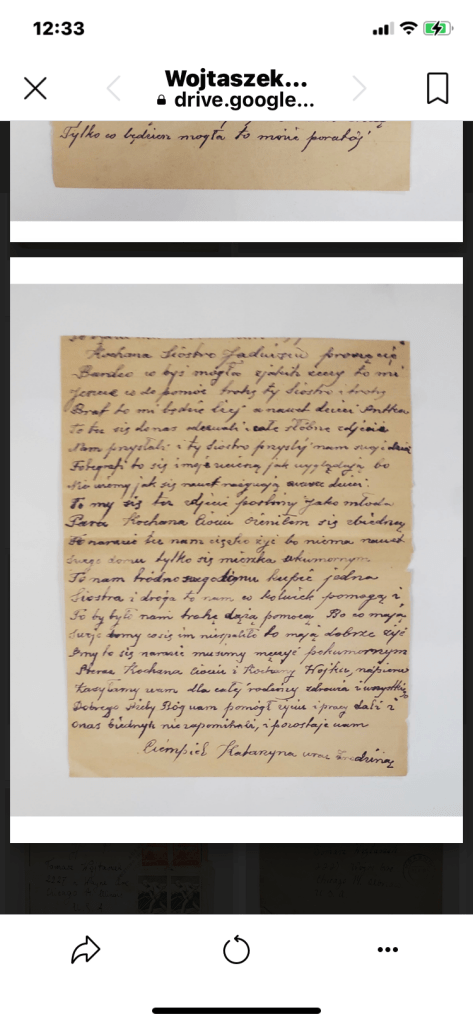 12:33
Wojtaszek...
drive.google...
Tylko co będzien mogła to mnie poratój
Kochana Siostro Jadwisiu proszę cię
Bardzo co byś mogła zjakih cery to mi
jescze co do pomóc trohę ty Siostro i troty
Brat to mi będzie lzej a nawet dzieci Antka
to tu się do nas odezwali i całe słóbne zdjcie
Nam przysłali i ty Siostro przyslij nam swoji dzieci
Fotografi to się imje uciną jak wyglądają bo
Nie wiemy jak się nawet nazywają wasze dzieci
To my się tu zdjcie postimy jako młoda
Para Kochana Ciociu ozeniłem się zbiedną
To narazie tu nam ciężko żyć bo nima nawet
swego domu tylko się mieszka wkumornym
To nam tródno swego domu kupic jedna
Siostra i droga to nam co kolwiek pomogą i
To by było nam trohę dążą pomocą Bo co mają
swoje domy co się im niespalili to mają dobrze żyć
A my to się narazie musimy męczyć pokumornym
Teraz Kochana Ciociu i Kochany Wojku, napisane
Zasyłamy wam dla całej rodziny zdrowia i wszystkiego
Dobrego Żeby Bóg wam pomógł życiu i pracy dali i
Onas biednych nie zapomihali, i pozostaje wam
Ciempiel Kataryna wraz zrodziną